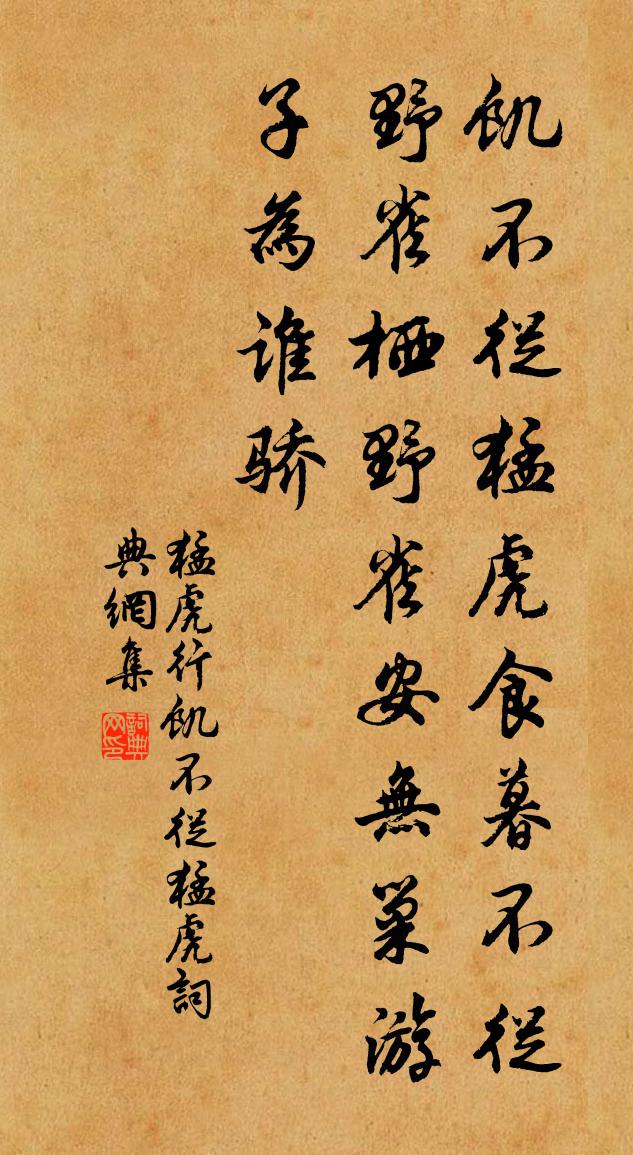 飢不從猛虎食暮不從
野雀栖野雀安無巢游
子為誰骄
猛虎行飢不從猛虎詞
典網集
詞典
网印